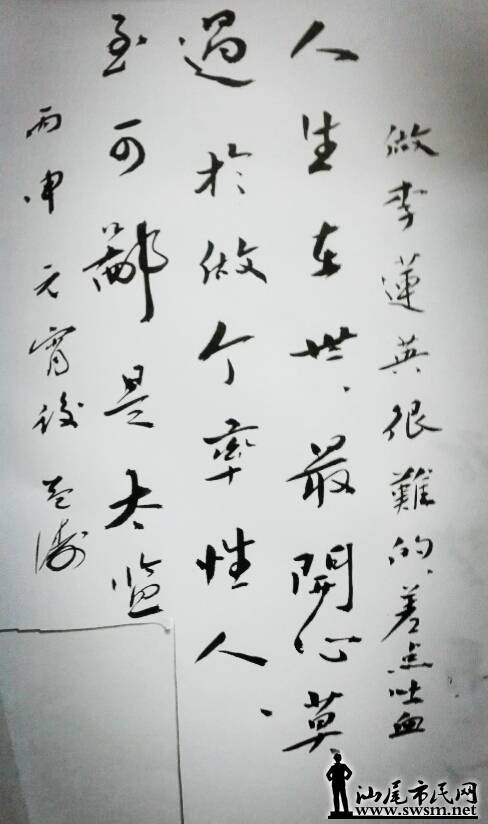 做李蓮英很難的、差点吐血
人生在世、最開心莫
過於做个率性人、
至可鄙是太监
丙申元宵後
汕尾市民网
www.swsm.net